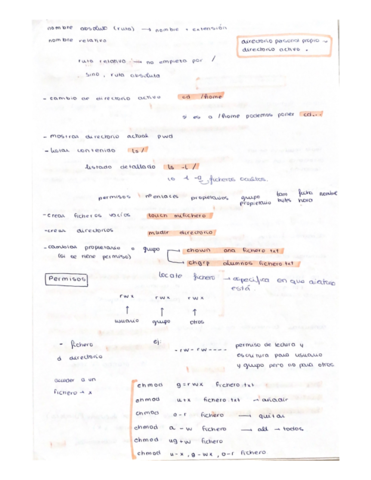 nombre absoluto (ruta) → nombre + extensión
nombre relativo
directorio personal propio ~
directorio activo .
ruta relativa → no empieza por /
sino, ruta absoluta
- cambio de directorio activo cd /home
o es a /home podemos poner cd..
- mostrar directorio activo pwd
- listar contenido ls /
listado detallado ls -l /
ls -a ficheros ocultos
permisos nºenlaces propietarios grupo propietario tam bytes fecha hora nombre
- crear ficheros vacíos touch mifichero
- crear directorios mkdir directorio
- cambiar propietario o grupo chown ana fichero.txt
(si se tiene permiso) chgrp alumnos fichero.txt
Permisos
locate fichero → especifica en que directorio está
rwx rwx rwx
↑ ↑ ↑
usuario grupo otros
- fichero
d directorio
ej:
-rw-rw----
permiso de lectura y
escritura para usuario
y grupo pero no para otros
a un
fichero → x
chmod g=rwx fichero.txt
chmod u+x fichero.txt → añadir
chmod o-r fichero → quitar
chmod a-w fichero → all → todos
chmod ug+w fichero
chmod u-x, g-wx, o-r fichero